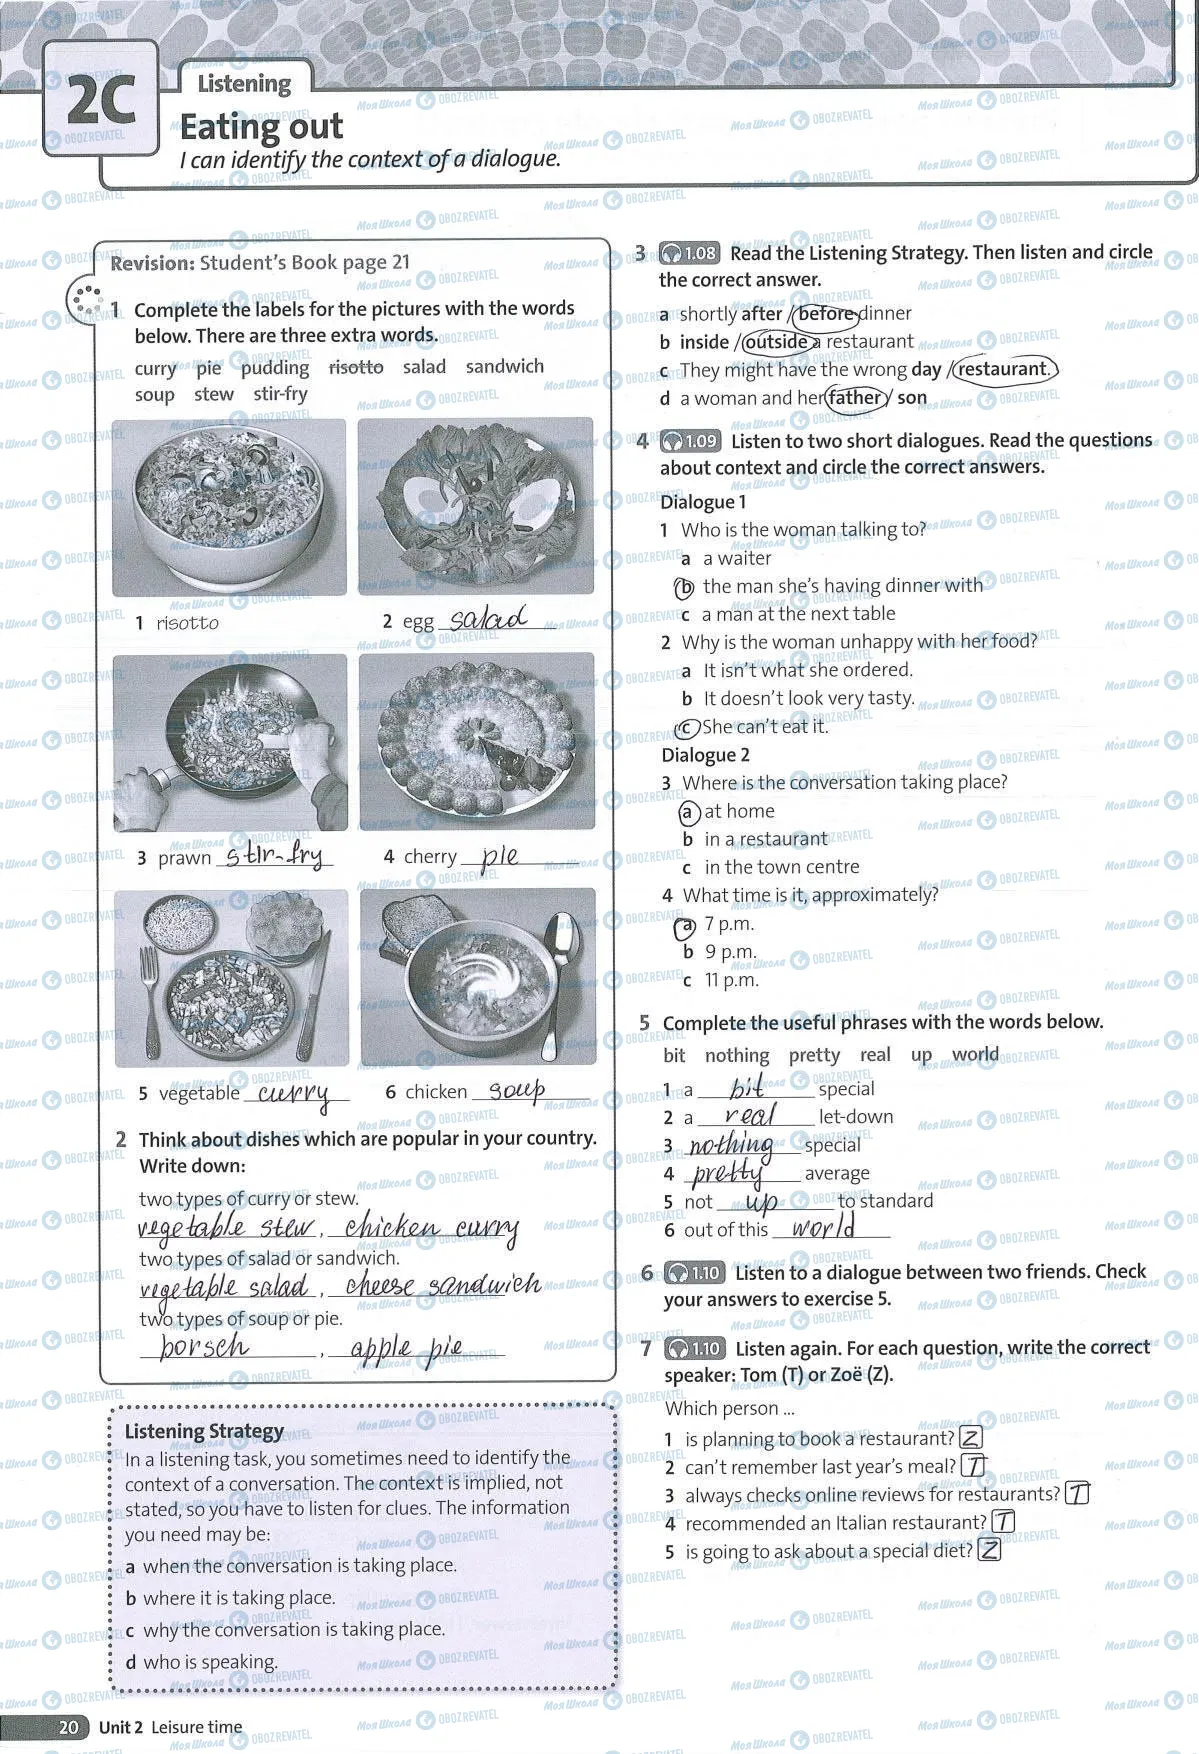 2C
Listening
Eating out
I can identify the context of a dialogue.
Revision: Student's Book page 21
1 Complete the labels for the pictures with the words
below. There are three extra words.
curry pie pudding risotto salad sandwich
soup stew stir-fry
1 risotto
2 egg salad
3 prawn stir-fry
4 cherry pie
5 vegetable curry
6 chicken soup
2 Think about dishes which are popular in your country.
Write down:
two types of curry or stew.
vegetable stew, chicken curry
two types of salad or sandwich.
vegetable salad, cheese sandwich
two types of soup or pie.
borsch, apple pie
Listening Strategy
In a listening task, you sometimes need to identify the
context of a conversation. The context is implied, not
stated, so you have to listen for clues. The information
you need may be:
a when the conversation is taking place.
b where it is taking place.
c why the conversation is taking place.
d who is speaking.
3 1.08 Read the Listening Strategy. Then listen and circle
the correct answer.
a shortly after / before dinner
b inside / outside a restaurant
c They might have the wrong day / restaurant.
d a woman and her father / son
4 1.09 Listen to two short dialogues. Read the questions
about context and circle the correct answers.
Dialogue 1
1 Who is the woman talking to?
a a waiter
b the man she's having dinner with
c a man at the next table
2 Why is the woman unhappy with her food?
a It isn't what she ordered.
b It doesn't look very tasty.
c She can't eat it.
Dialogue 2
3 Where is the conversation taking place?
a at home
b in a restaurant
c in the town centre
4 What time is it, approximately?
a 7 p.m.
b 9 p.m.
c 11 p.m.
5 Complete the useful phrases with the words below.
bit nothing pretty real up world
1 a bit special
2 a real let-down
3 nothing special
4 pretty average
5 not up to standard
6 out of this world
6 1.10 Listen to a dialogue between two friends. Check
your answers to exercise 5.
7 1.10 Listen again. For each question, write the correct
speaker: Tom (T) or Zoë (Z).
Which person ...
1 is planning to book a restaurant? Z
2 can't remember last year's meal? T
3 always checks online reviews for restaurants? T
4 recommended an Italian restaurant? T
5 is going to ask about a special diet? Z
20 Unit 2 Leisure time
Моя Школа OBOZREVATEL